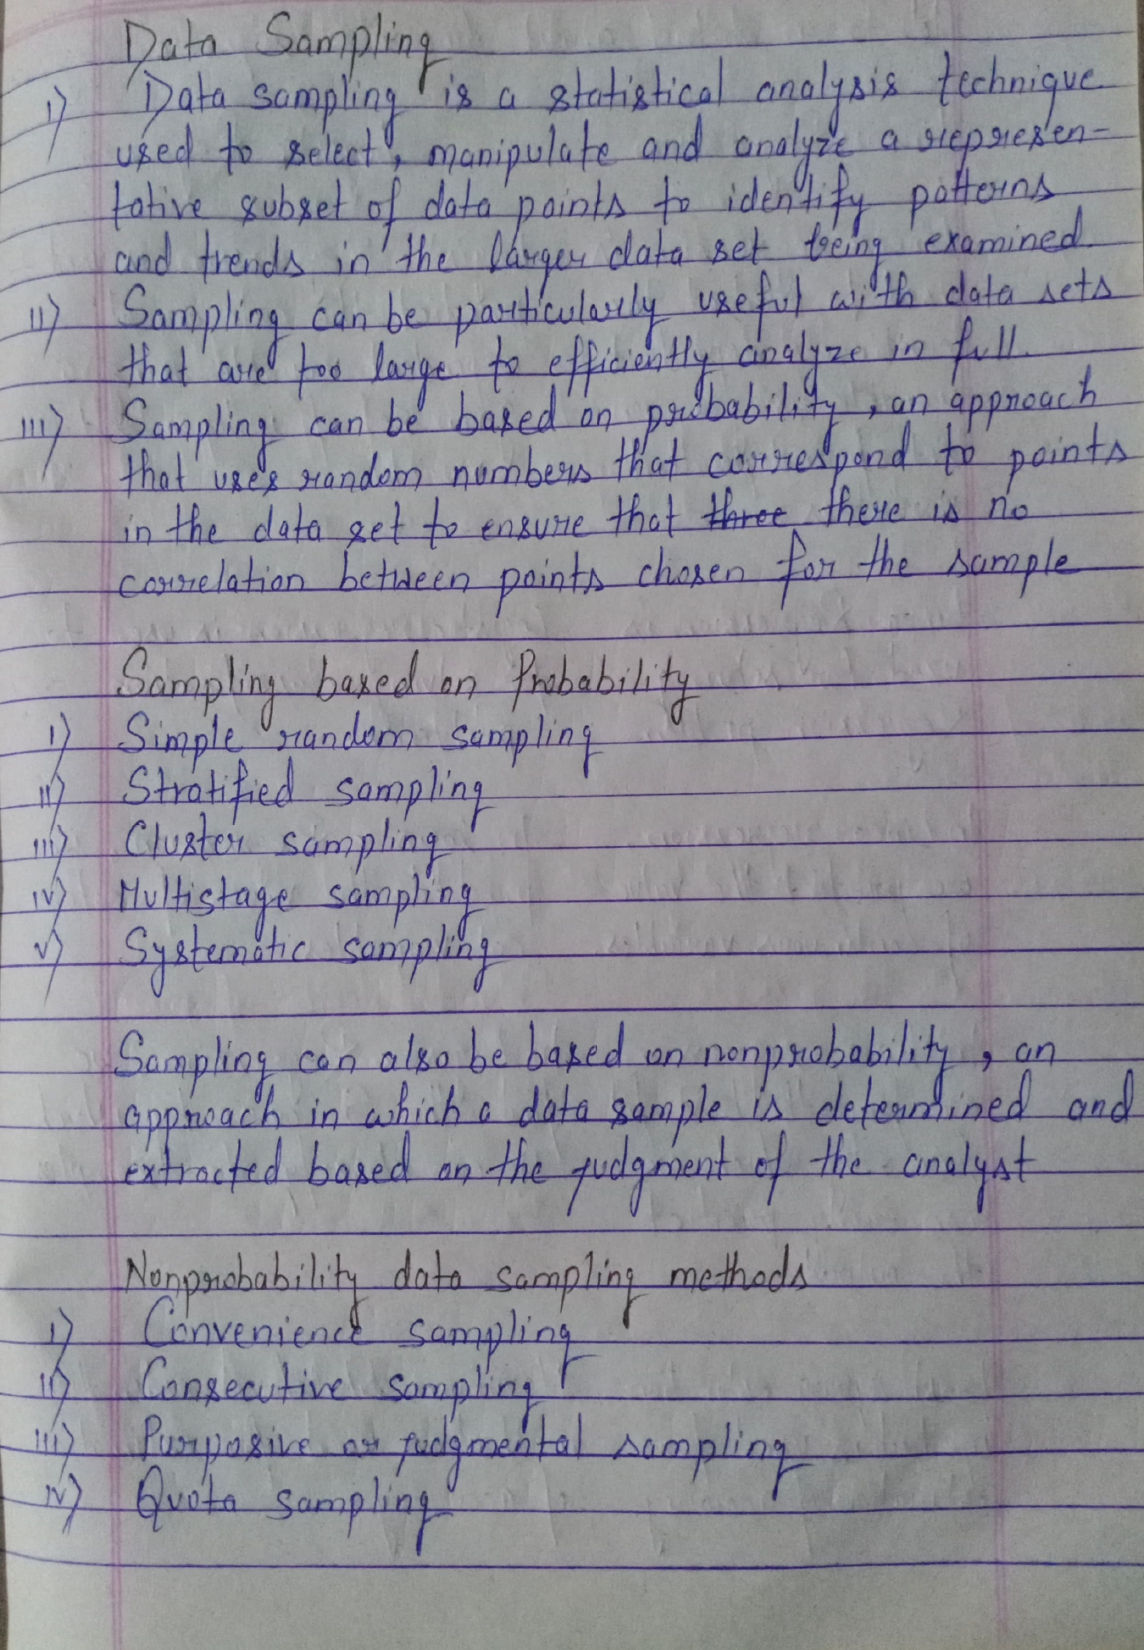 Data Sampling
i) Data sampling is a statistical analysis technique
used to select, manipulate and analyze a represen-
tative subset of data points to identify patterns
and trends in the larger data set being examined.
ii) Sampling can be particularly useful with data sets
that are too large to efficiently analyze in full.
iii) Sampling can be based on probability, an approach
that uses random numbers that correspond to points
in the data set to ensure that three there is no
correlation between points chosen for the sample
Sampling based on Probability
i) Simple random sampling
ii) Stratified sampling
iii) Cluster sampling
iv) Multistage sampling
v) Systematic sampling
Sampling can also be based on nonprobability, an
approach in which a data sample is determined and
extracted based on the judgment of the analyst
Nonprobability data sampling methods
i) Convenience sampling
ii) Consecutive sampling
iii) Purposive or judgmental sampling
iv) Quota sampling